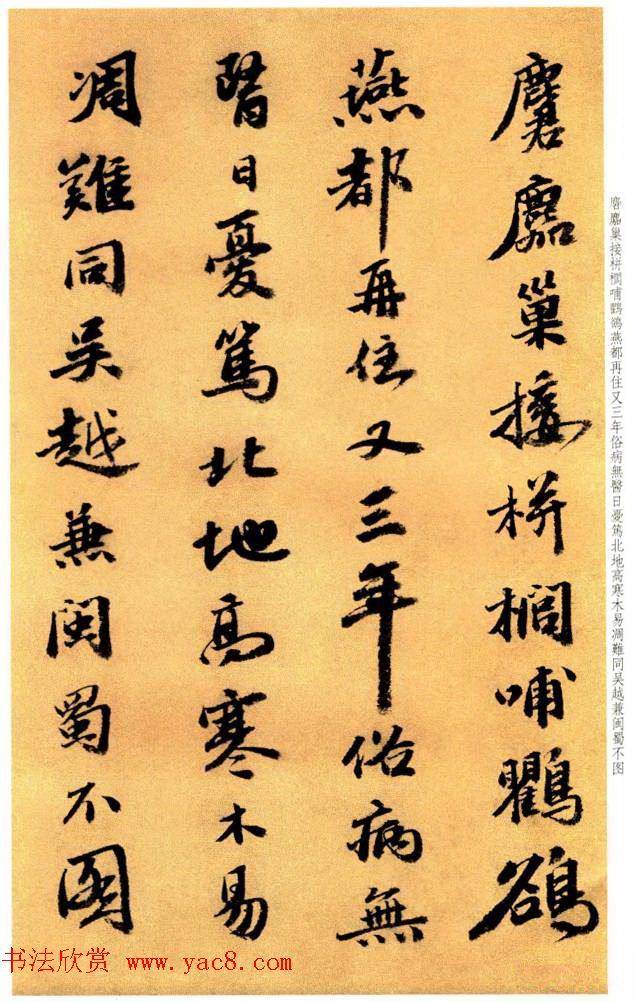 麏麚巢接栟櫚哺鸜鵒
燕都再住又三年俗病無
醫日憂篤北地高寒木易
凋難同吳越兼閩蜀不圖
麏麚巢接栟櫚哺鸜鵒燕都再住又三年俗病無醫日憂篤北地高寒木易凋難同吳越兼閩蜀不图
书法欣赏 www.yac8.com